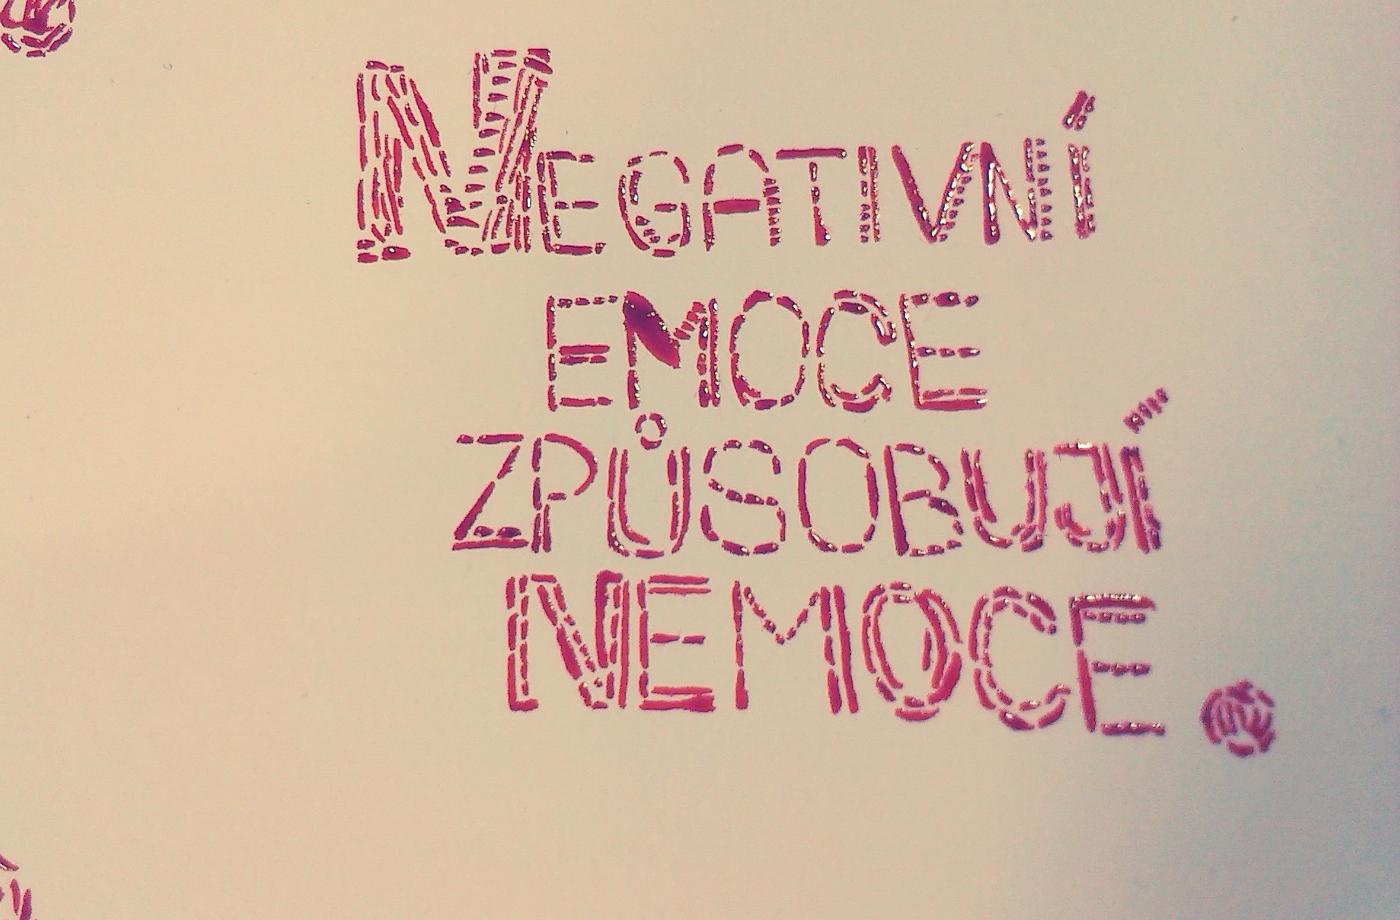 NEGATIVNÍ
EMOCE
ZPŮSOBUJÍ
NEMOCE.